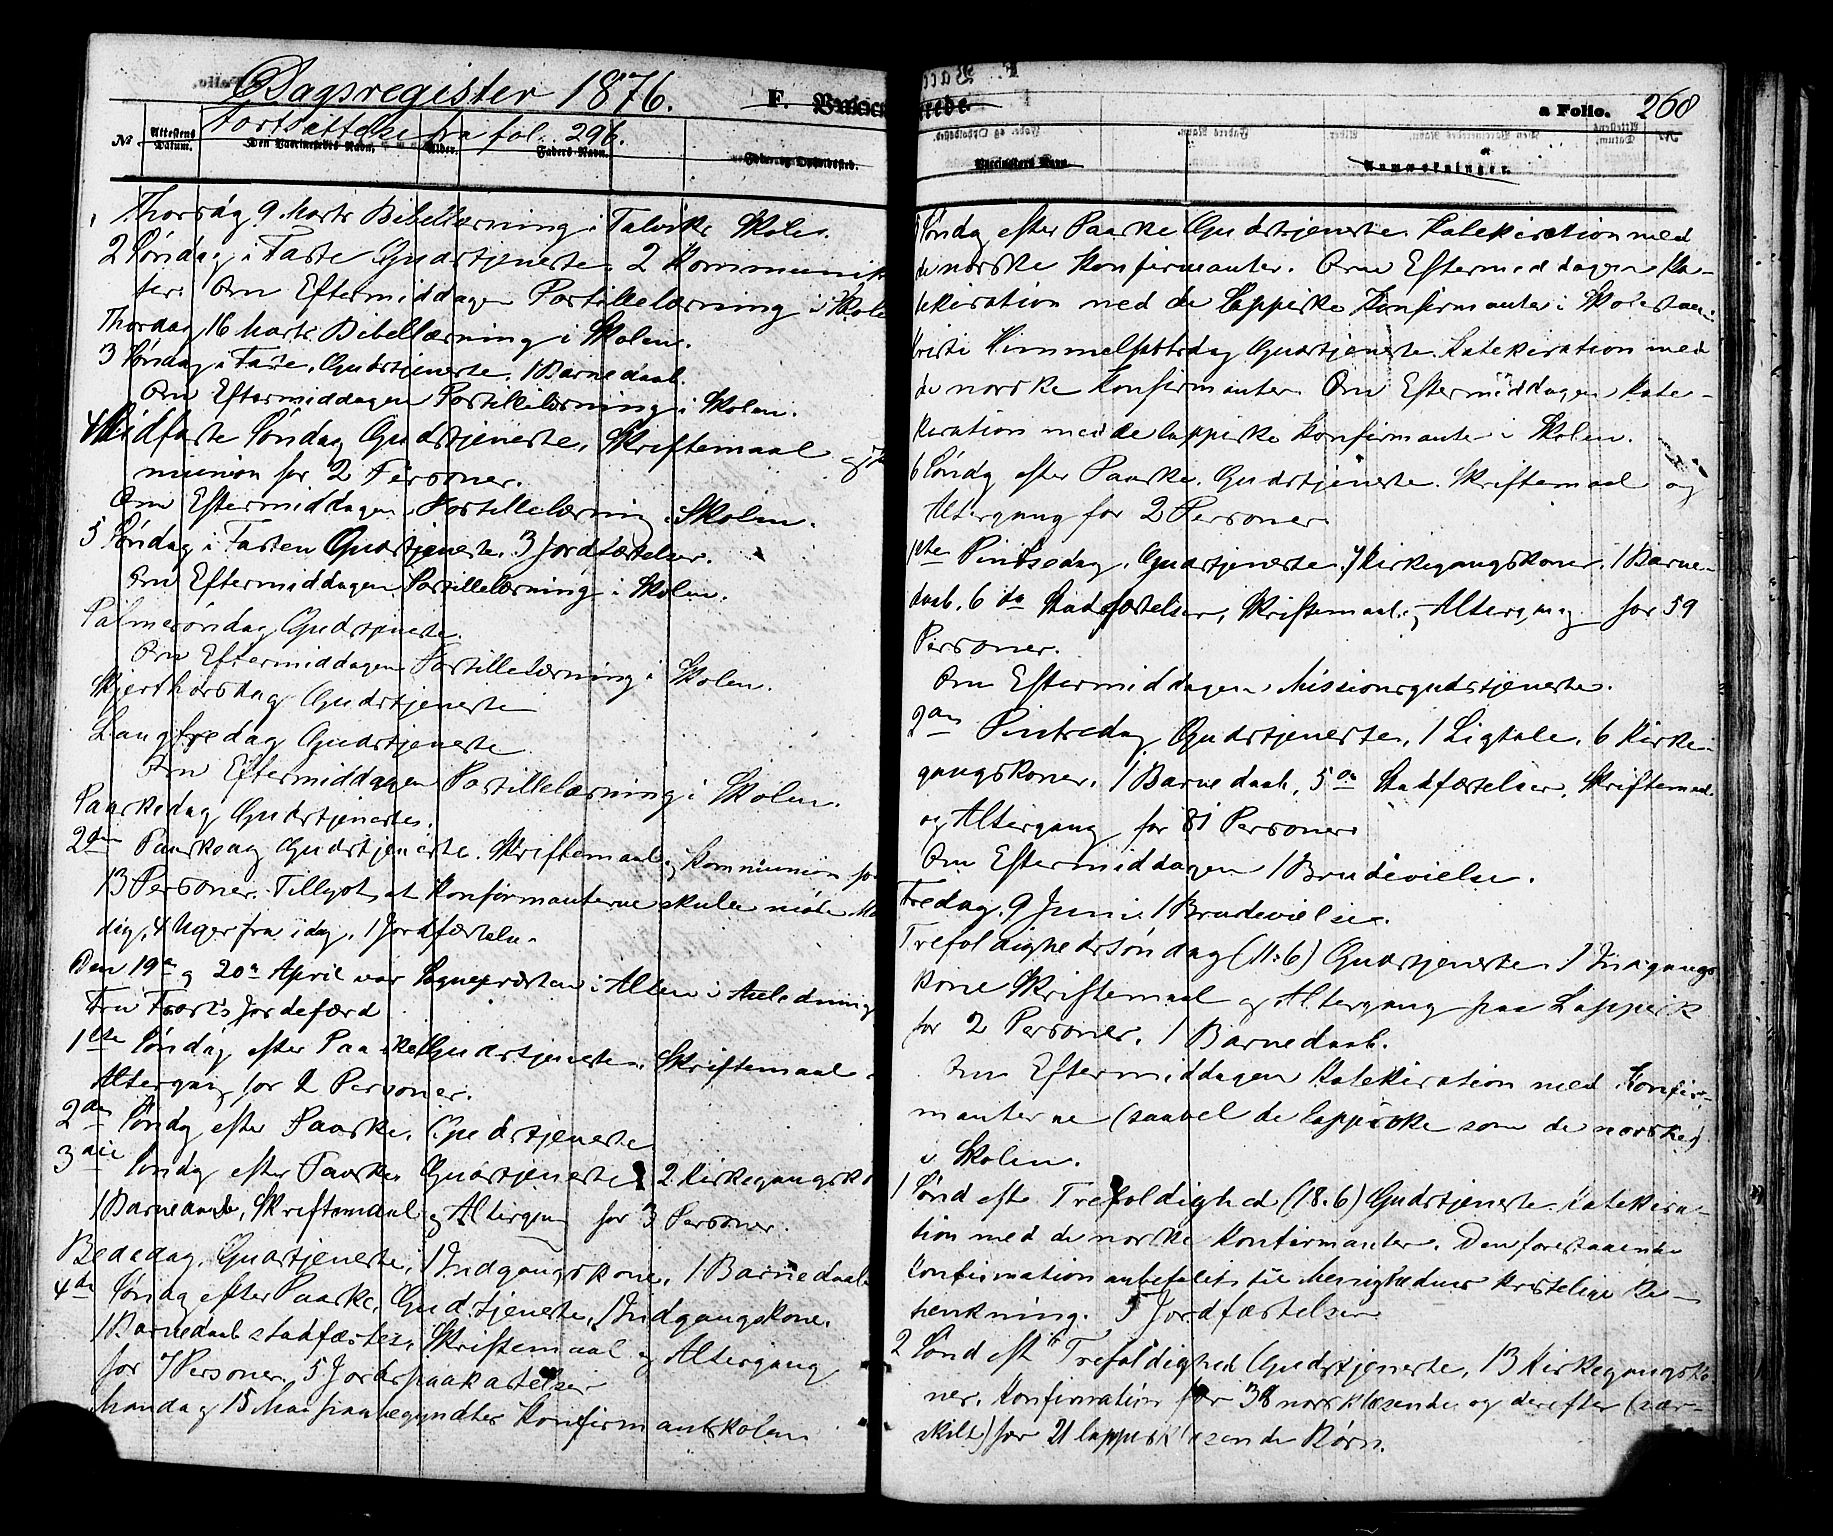 Dagsregister 1876.
F. Vaccinerede.
a Folio. 268
Fortsættelse fra fol. 296.
No Attestens Datum. Den Vaccineredes Navn. Alder. Faders Navn. Føde- og Opholdssted.
Vaccinateurs Navn. Anmærkninger.
Thorsdag 9 Marts Bibellæsning i Talviks Skole.
2 Søndag i Faste Gudstjeneste. 2 Kommunikan
ter. Om Eftermiddagen Postillelæsning i Skolen
Thorsdag 16 Marts Bibellæsning i Skolen.
3 Søndag i Faste, Gudstjeneste. 1 Barnedaab.
Om Eftermiddagen Postillelæsning i Skolen.
Midfaste Søndag Gudstjeneste, Skriftemaal og Kom
munion for 2 Personer.
Om Eftermiddagen Postillelæsning i Skolen.
5 Søndag i Fasten Gudstjeneste. 3 Jordfæstelser.
Om Eftermiddagen Postillelæsning i Skolen.
Palmesøndag Gudstjeneste.
Om Eftermiddagen Postillelæsning i Skolen.
Skjerthorsdag Gudstjeneste
Langfredag Gudstjeneste
Om Eftermiddagen Postillelæsning i Skolen.
Paaskedag Gudstjeneste.
2den Paaskedag Gudstjeneste. Skriftemaal og Kommunion for
13 Personer. Tillyst, at Konfirmanterne skulle møde Man
dag, 4 Uger fra idag. 1 Jordfæstelse
Den 19de og 20de April var Sognepræsten i Alten i Anledning
Fru Froste Jordefærd
1ste Søndag efter Paaske Gudstjeneste. Skriftemaal
Altergang for 2 Personer.
2den Søndag efter Paaske. Gudstjeneste
3die Søndag efter Paaske Gudstjeneste 2 Kirkegangsko
1 Barnedaab, Skriftemaal og Altergang for 3 Personer.
Bededag. Gudstjeneste, 1 Indgangskone, 1 Barnedaab
4de Søndag efter Paaske, Gudstjeneste, 1 Indgangskone.
1 Barnedaab stadfæstes, Skriftemaal og Altergang
for 7 Personer, 5 Jordspaakastelser
Mandag 15 Mai paabegyndtes Konfirmantskolen
Søndag efter Paaske Gudstjeneste Katekisation med
de norske Konfirmanter. Om Eftermiddagen Ka-
tekisation med de lappiske Konfirmanter i Skolestuen
Kristi Himmelfartsdag Gudstjeneste Katekisation med
de norske Konfirmanter Om Eftermiddagen Kate-
kisation med de lappiske Konfirmanter i Skolen.
6 Søndag efter Paaske. Gudstjeneste. Skriftemaal og
Altergang for 2 Personer
1ste Pintsedag. Gudstjeneste, 7 Kirkegangskoner, 1 Barne-
daab, 6 do Stadfæstelser, Skriftemaal og Altergang for 59
Personer.
Om Eftermiddagen Missionsgudstjeneste.
2den Pintsedag Gudstjeneste, 1 Ligtale, 6 Kirke-
gangskoner, 1 Barnedaab, 5 do Stadfæstelser, Skriftemaal
og Altergang for 81 Personer
Om Eftermiddagen 1 Brudevielse.
Fredag 9 Juni 1 Brudevielse.
Trefoldighedssøndag (11.6) Gudstjeneste. 1 Indgangs
kone Skriftemaal og Altergang paa Lappisk
for 2 Personer. 1 Barnedaab.
Om Eftermiddagen Katekisation med Konfir-
manterne (saavel de lappiske som de norske)
i Skolen.
1 Sønd eft Trefoldighed (18.6) Gudstjeneste. Katekisa-
tion med de norske Konfirmanter. Den forestaaende
Konfirmation anbefalet til Menighedens kristelige Be-
tænkning. 5 Jordfæstelser
2 Sønd eft Trefoldighed Gudstjeneste, 13 Kirkegangsko
ner. Konfirmation for 38 norsklæsende og derefter (sær-
skilt) for 21 lappisklæsende Børn.